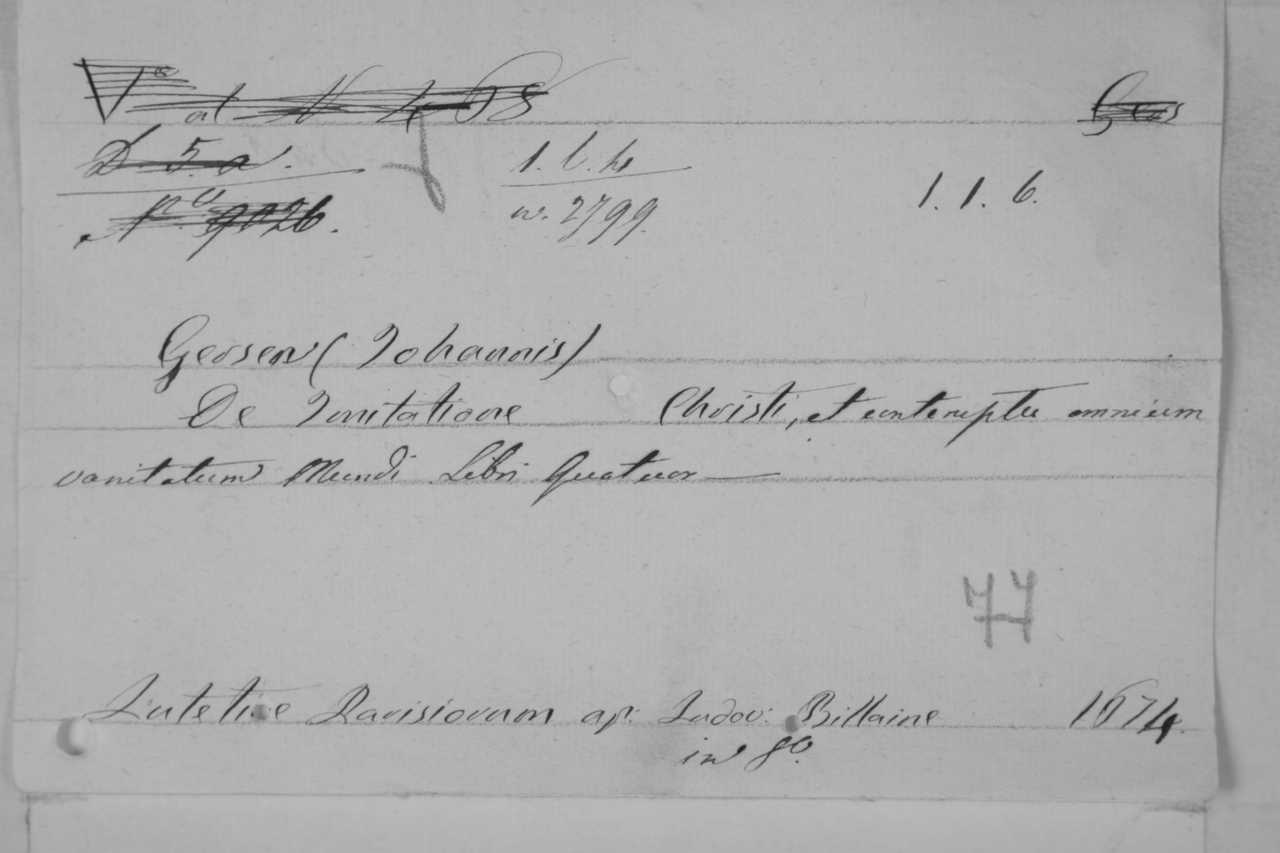 1. 6. h
n. 2799.
1. 1. 6.
Gersen (Johannis)
De Imitatione Christi, et contemptu omnium
vanitatum Mundi Libri Quatuor
77
Lutetiae Parisiorum ap: Ludov: Billaine 1674.
in 8º.